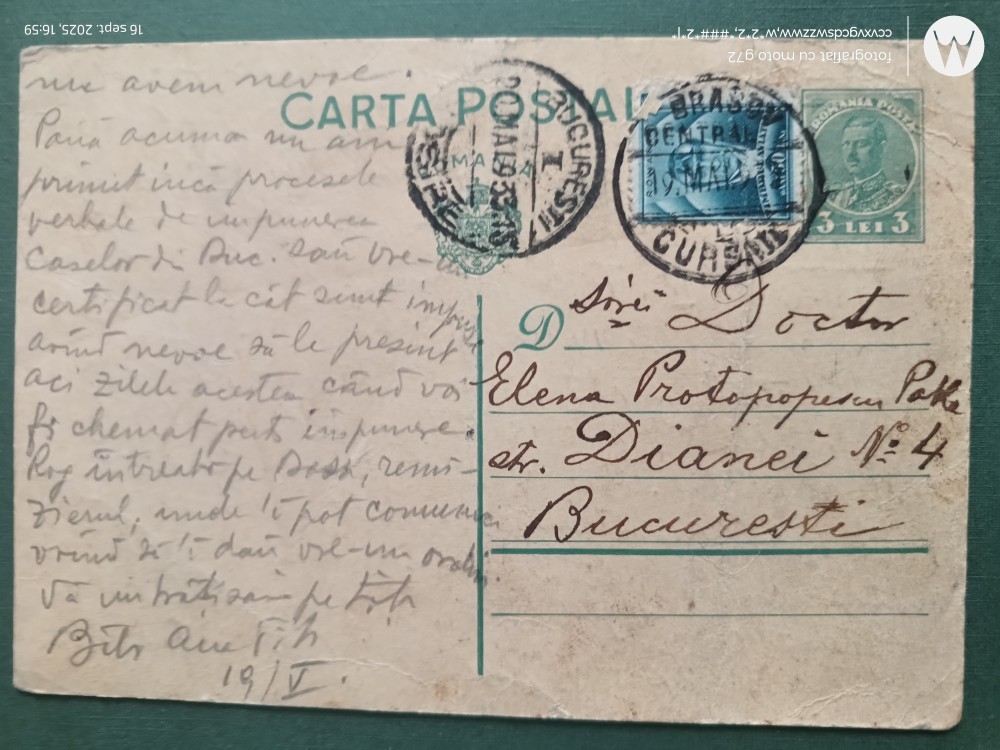 16 sept. 2025, 16:59
fotografiat cu moto g72
ccvxvgcdswzzwwzw,w"2"2,"###"2"|
CARTA POSTALA
ROMANIA POSTA
3 LEI 3
BRASOV
CENTRALA
9. MAI
CURSA III
BUCUREȘTI I
20 MAI 935
nu avem nevoe.
Până acuma nu am
primit încă procesele
verbale de impunerea
Caselor din Buc. sau vre-un
certificat la cât sunt impuse
având nevoe să le prezint
aci zilele acestea când voi
fi chemat ptr impunere.
Rog întreabă pe remi-
zierul, unde îi pot comunica
vrând să îi dau vre-un ordin
Vă îmbrățișăm pe toți
19/V.
D
Doctor
Elena Protopopescu Pake
str. Dianei No 4
Bucuresti